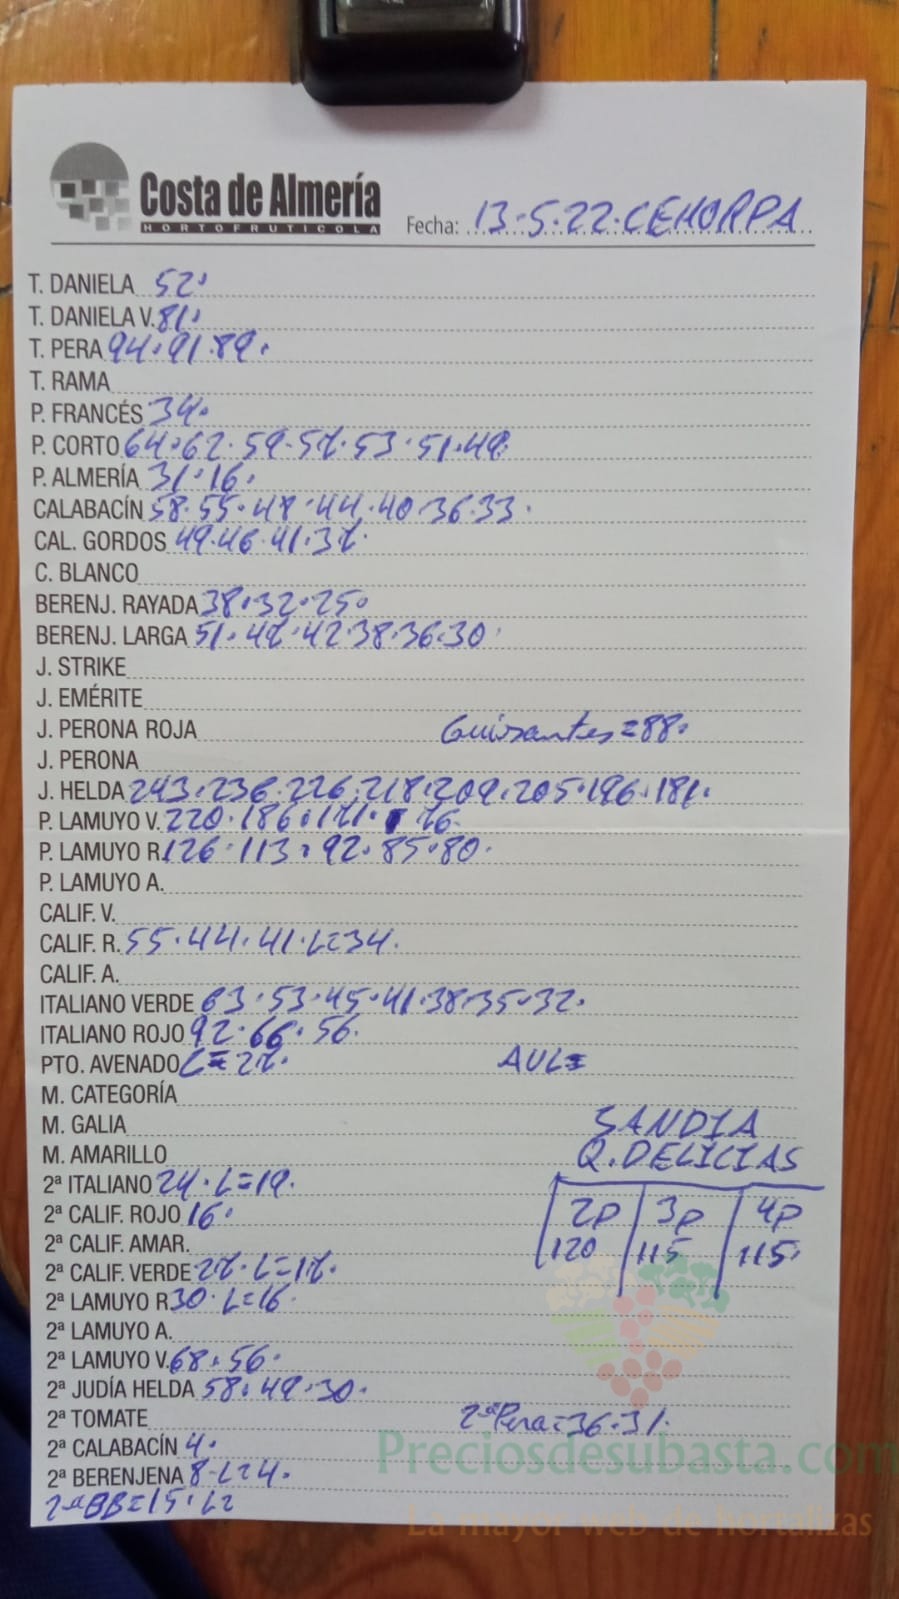 Costa de Almería
HORTOFRUTICOLA
Fecha: 13·5·22·CEHORPA
T. DANIELA 52·
T. DANIELA V. 81·
T. PERA 94·91·89·
T. RAMA
P. FRANCÉS 34·
P. CORTO 64·62·59·57·53·51·49·
P. ALMERÍA 31·16·
CALABACÍN 58·55·48·44·40·36·33·
CAL. GORDOS 49·46·41·37·
C. BLANCO
BERENJ. RAYADA 38·32·25·
BERENJ. LARGA 51·47·42·38·36·30·
J. STRIKE
J. EMÉRITE
J. PERONA ROJA Guisantes=88·
J. PERONA
J. HELDA 243·236·226·218·209·205·196·181·
P. LAMUYO V. 220·186·171·76·
P. LAMUYO R. 126·113·92·85·80·
P. LAMUYO A.
CALIF. V.
CALIF. R. 55·44·41·L=34·
CALIF. A.
ITALIANO VERDE 63·53·45·41·38·35·32·
ITALIANO ROJO 92·66·56·
PTO. AVENADO L=27· AVL=
M. CATEGORÍA
M. GALIA SANDIA
M. AMARILLO Q.DELICIAS
2ª ITALIANO 24·L=19·
2ª CALIF. ROJO 16· 2P 3P 4P
2ª CALIF. AMAR. 120 115 115·
2ª CALIF. VERDE 27·L=17·
2ª LAMUYO R 30·L=16·
2ª LAMUYO A.
2ª LAMUYO V. 68·56·
2ª JUDÍA HELDA 58·49·30·
2ª TOMATE 2ªPera=36·31·
2ª CALABACÍN 4·
2ª BERENJENA 8·L=4·
2ªBB=15·L=
Preciosdesubasta.com
La mayor web de hortalizas